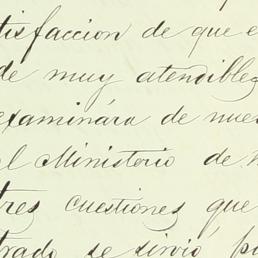 tisfaccion de que e
de muy atendibles
examinára de nues
el Ministerio de
tres cuestiones que
trado se sirvió